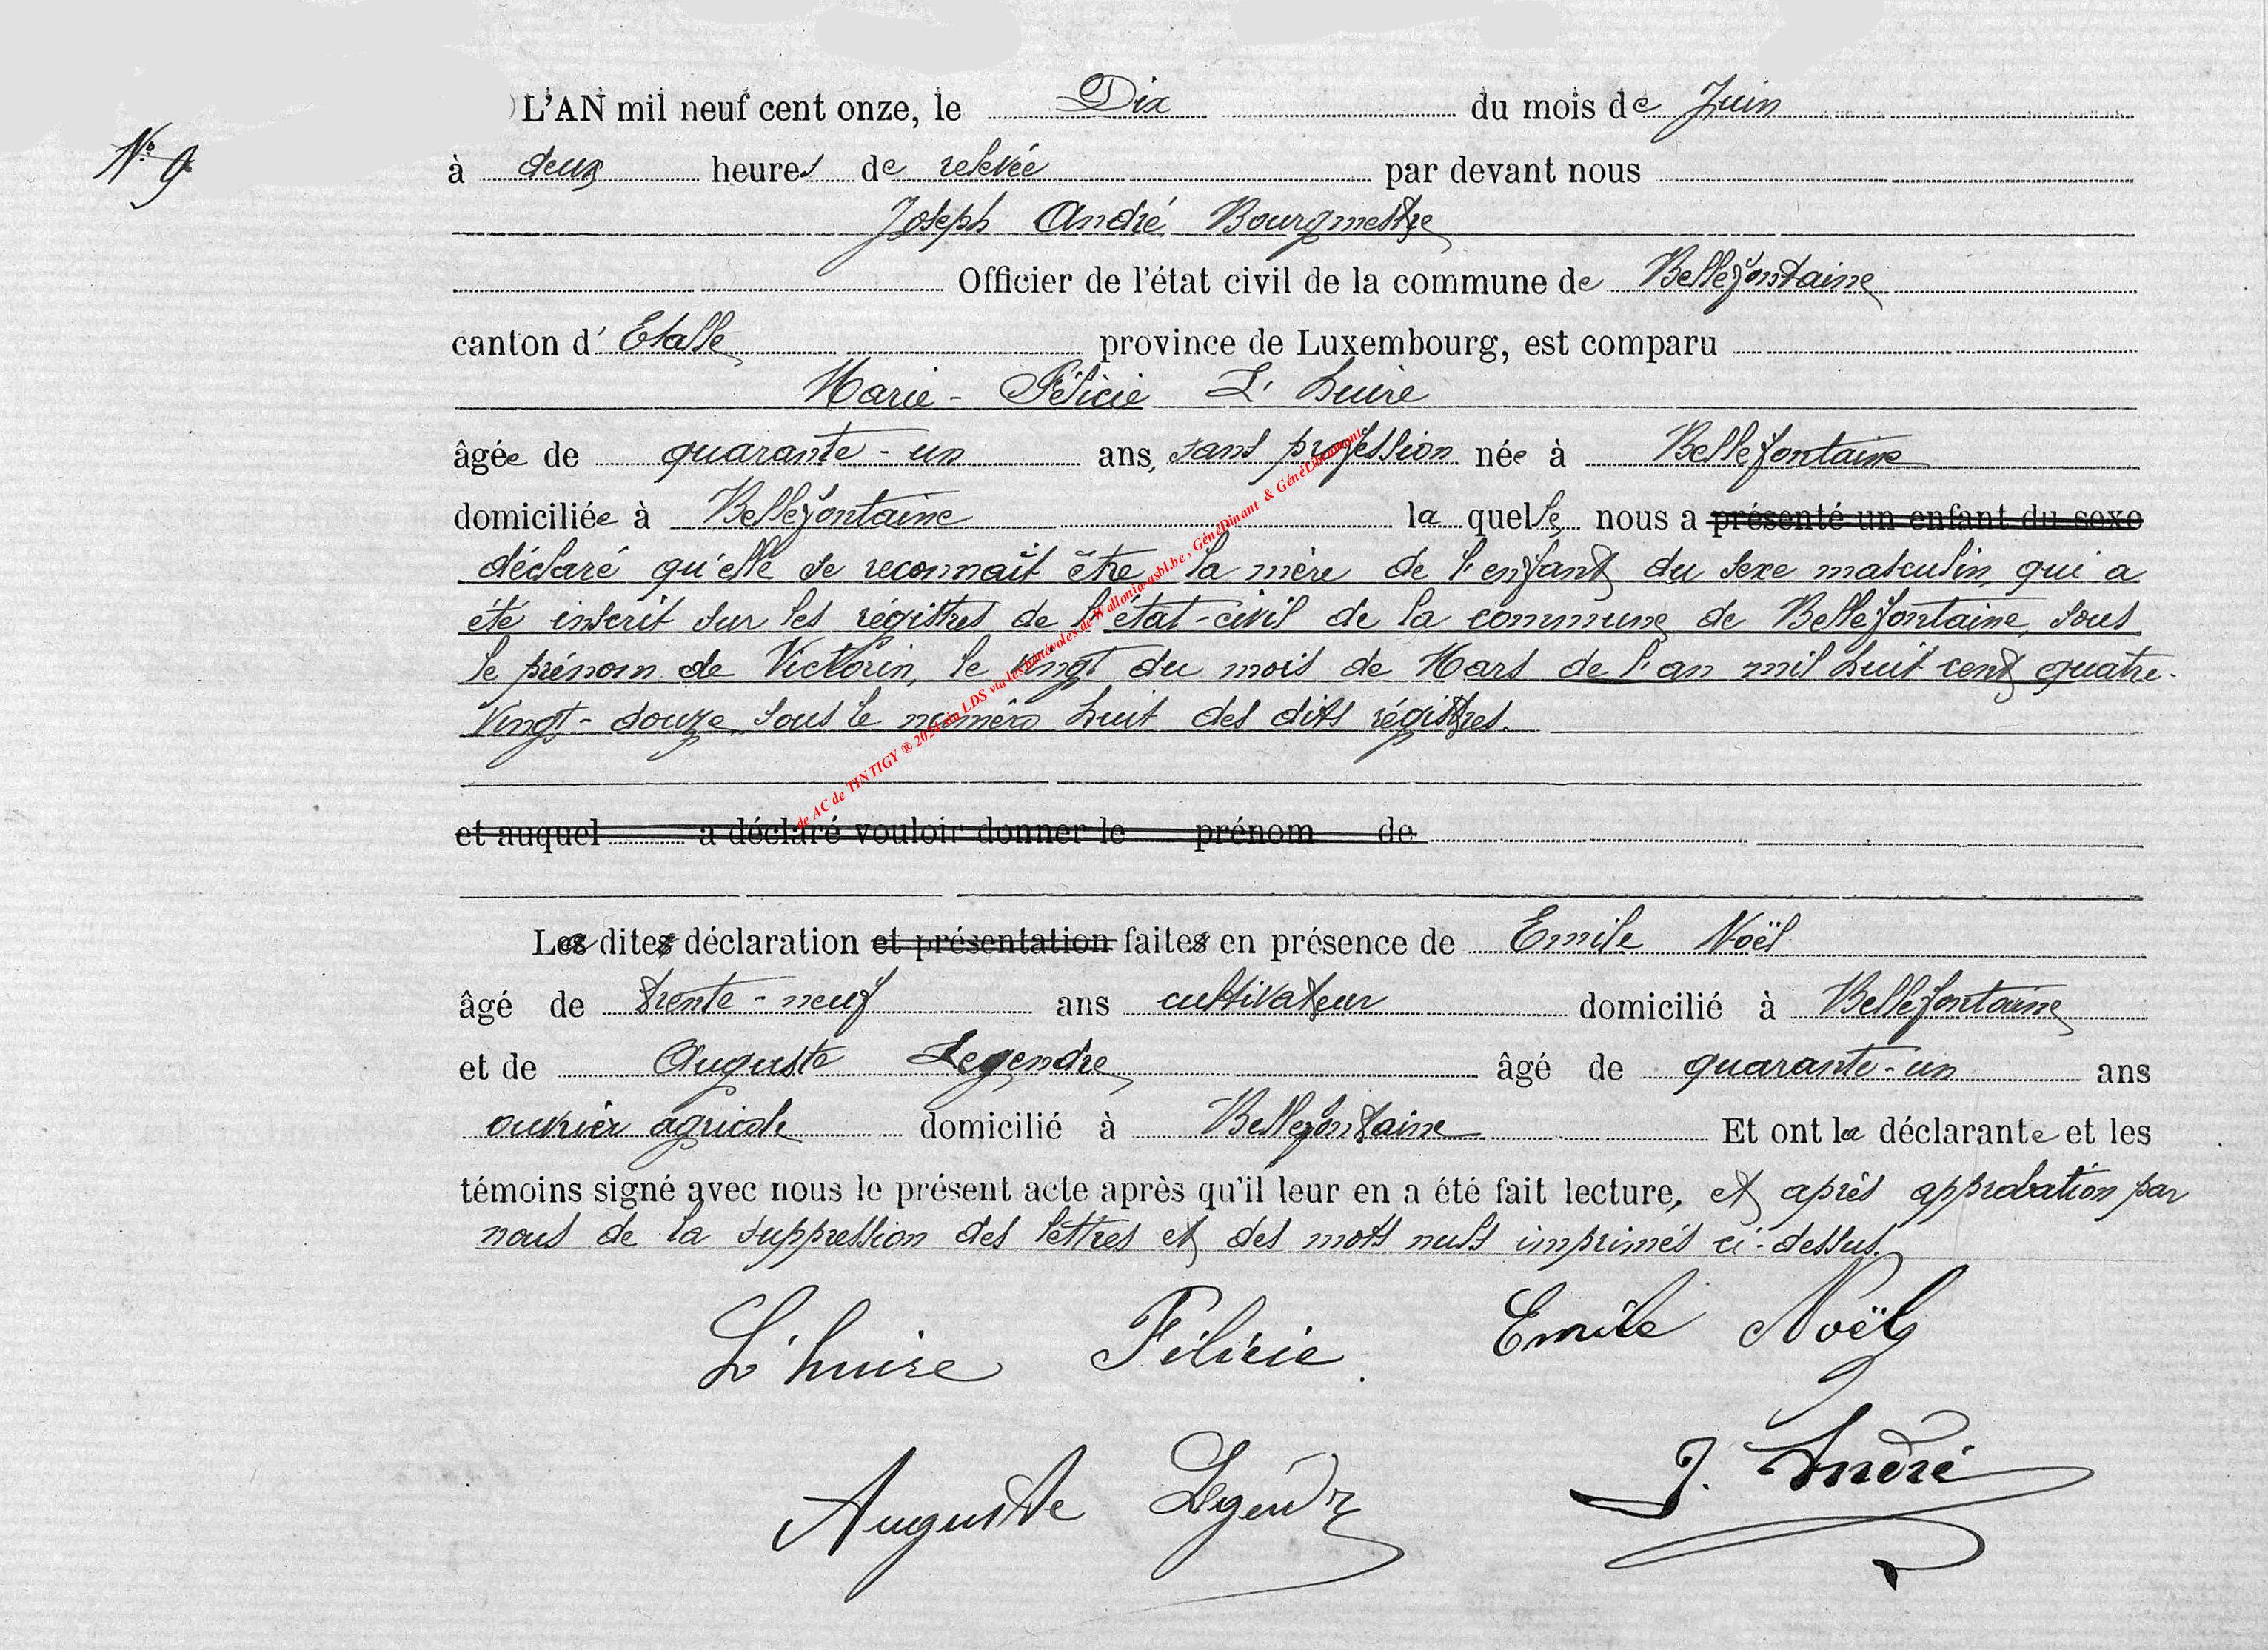 L'AN mil neuf cent onze, le Dix du mois de Juin
N° 9
à deux heures de relevée par devant nous
Joseph André Bourgmestre
Officier de l'état civil de la commune de Bellefontaine
canton d'Etalle province de Luxembourg, est comparu
Marie-Félicie L'huire
âgée de quarante-un ans, sans profession née à Bellefontaine
domiciliée à Bellefontaine la quelle nous a présenté un enfant du sexe
déclaré qu'elle se reconnaît être la mère de l'enfant du sexe masculin, qui a
été inscrit sur les régistres de l'état-civil de la commune de Bellefontaine, sous
le prénom de Victorin, le vingt du mois de Mars de l'an mil huit cent quatre-
vingt-douze sous le numéro huit des dits régistres.
et auquel a déclaré vouloir donner le prénom de
La dite déclaration et présentation faite en présence de Emile Noël
âgé de trente-neuf ans cultivateur domicilié à Bellefontaine
et de Auguste Legendre âgé de quarante-un ans
ouvrier agricole domicilié à Bellefontaine Et ont la déclarante et les
témoins signé avec nous le présent acte après qu'il leur en a été fait lecture, et après approbation par
nous de la suppression des lettres et des mots nuls imprimés ci-dessus.
L'huire Félicie. Emile Noël
Auguste Legendr J. André
de AC de TINTIGY ® 2021 via LDS via les bénévoles de Wallonia-asbl.be, GénéDinant & GénéLibramont